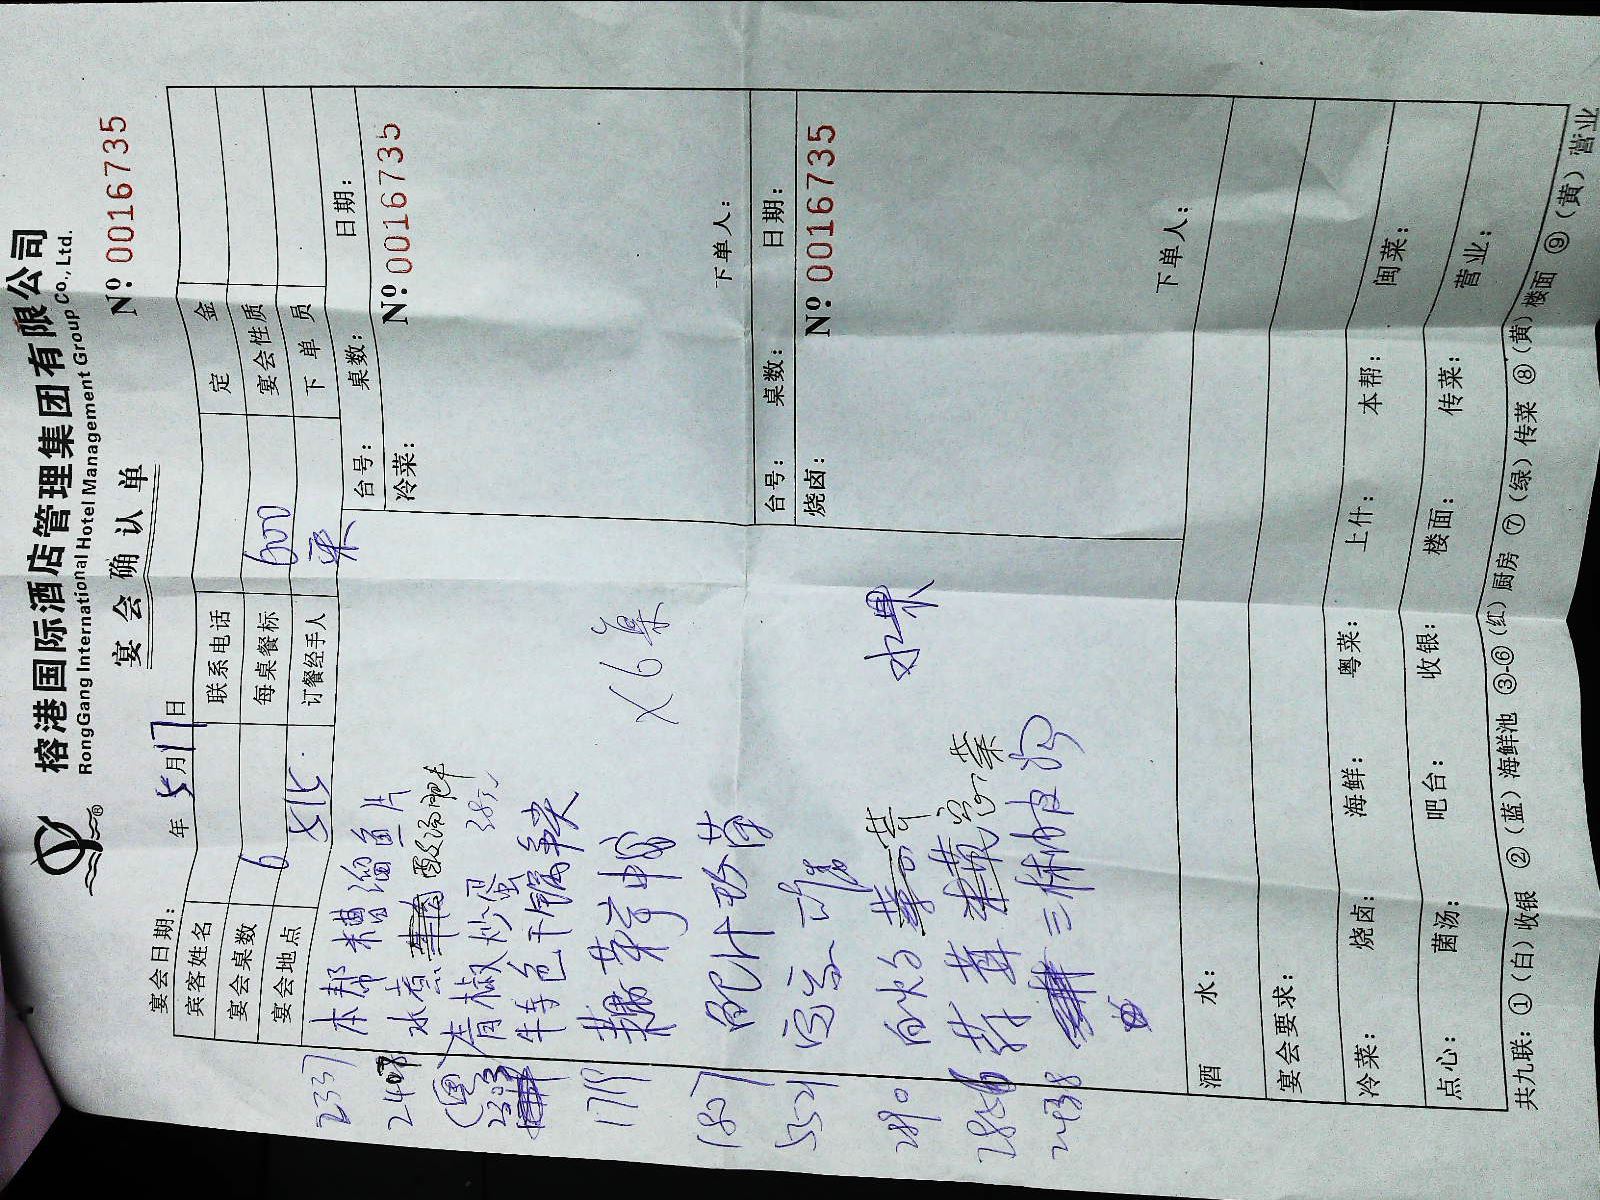 榕港国际酒店管理集团有限公司
RongGang International Hotel Management Group Co., Ltd.
®
宴会确认单
Nº 0016735
宴会日期： 年 5月17日
宾客姓名 联系电话 定金
宴会桌数 6 每桌餐标 600 宴会性质
宴会地点 515 订餐经手人 下单员
2337 本帮糟溜鱼片
水煮
青椒炒蛋 38元
牛
1719
1807 鲍汁
5521
2890 白灼
2438 三林肉皮
X6桌
水果
台号： 桌数： 日期：
冷菜： Nº 0016735
下单人：
台号： 桌数： 日期：
烧卤： Nº 0016735
下单人：
酒 水：
宴会要求：
冷菜： 烧卤： 海鲜： 粤菜： 上什： 本帮： 闽菜：
点心： 菌汤： 吧台： 收银： 楼面： 传菜： 营业：
共九联：①（白）收银 ②（蓝）海鲜池 ③-⑥（红）厨房 ⑦（绿）传菜 ⑧（黄）楼面 ⑨（黄）营业